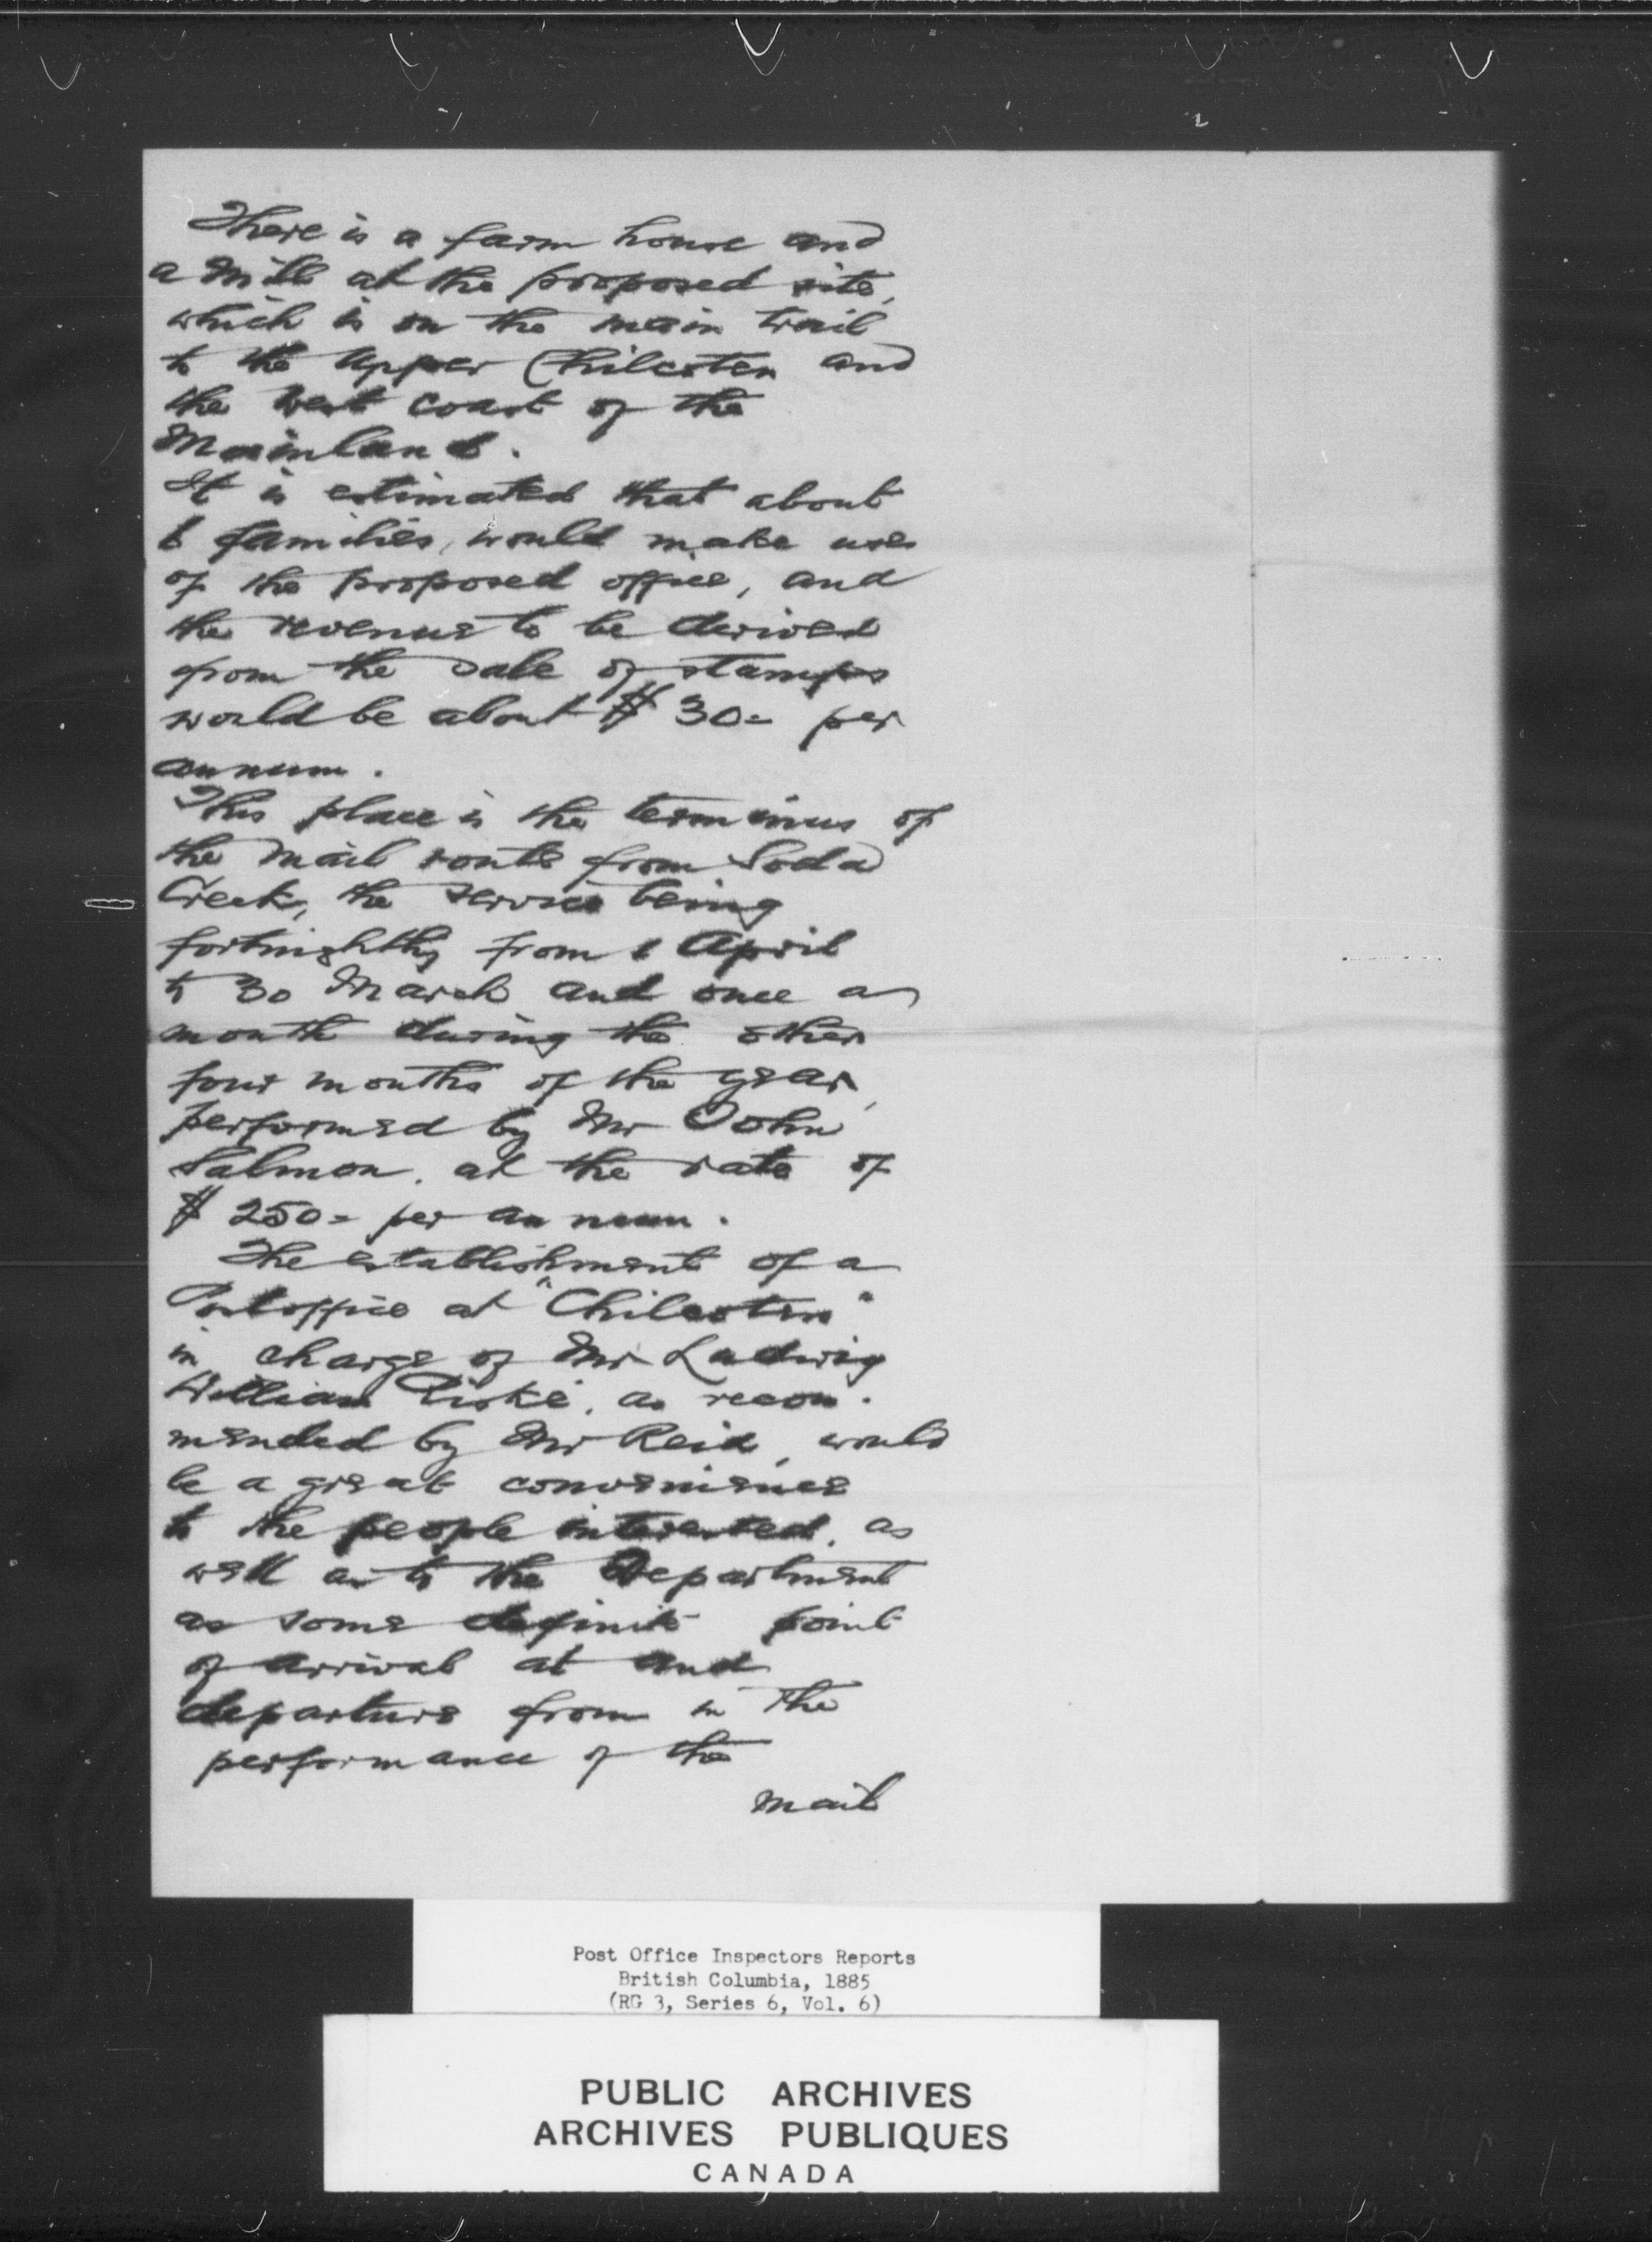 There is a farm house and
a Mill at the proposed site,
which is on the main trail
to the Upper Chilcoten and
the West coast of the
Mainland.
It is estimated that about
families, would make use
of the proposed office, and
the revenue to be derived
from the sale of stamps
would be about $ 30= per
annum.
This place is the terminus of
the Mail route from Soda
Creek, the service being
fortnightly from 1 April
to 30 March and once a
month during the other
four months of the year,
performed by Mr John
Salmon, at the rate of
$ 250= per annum.
The establishment of a
Postoffice at "Chilcoten"
in charge of Mr Ludwig
William, as recom-
mended by Mr Reid, would
be a great convenience
to the people interested, as
well as to the Department
as some definite point
of arrival at and
departure from in the
performance of the
mail
Post Office Inspectors Reports
British Columbia, 1885
(RG 3, Series 6, Vol. 6)
PUBLIC ARCHIVES
ARCHIVES PUBLIQUES
CANADA